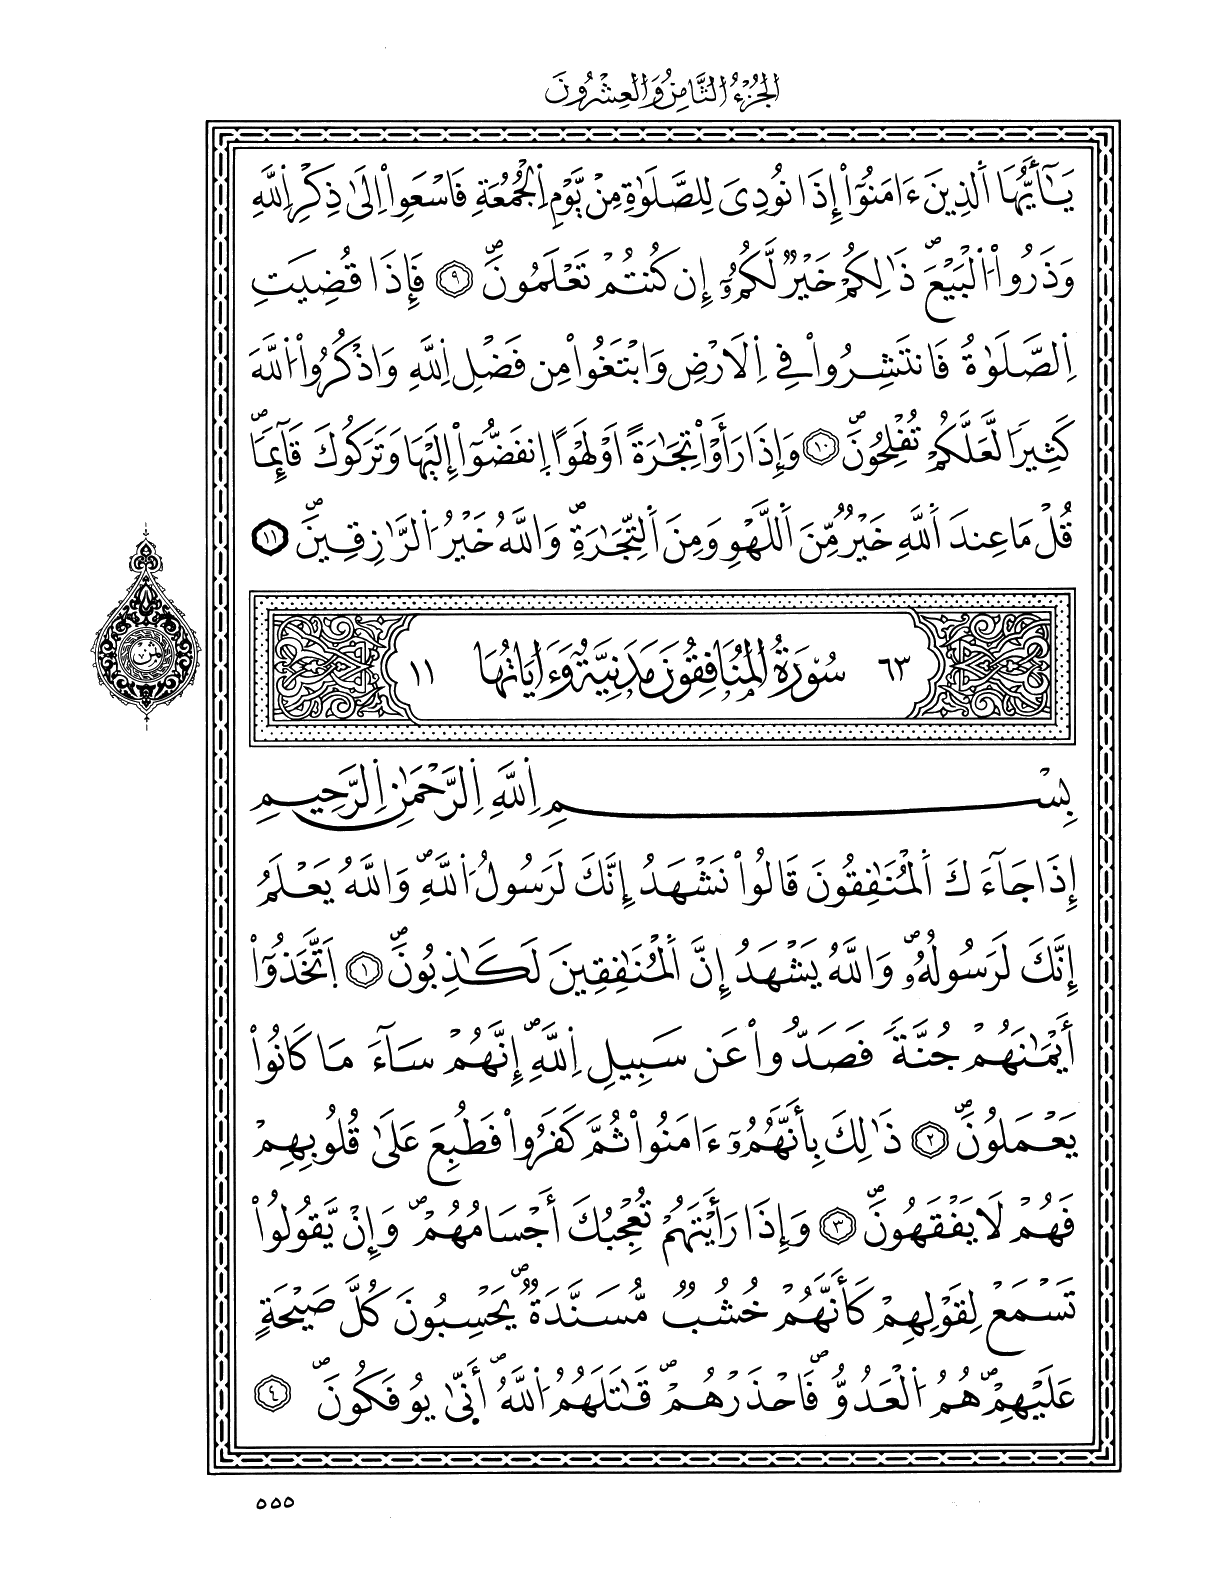 الجُزْءُ الثَّامِنُ وَالعِشْرُونَ
يَٰٓأَيُّهَا اَ۬لذِينَ ءَامَنُوٓاْ إِذَا نُودِيَ لِلصَّلَوٰةِ مِنْ يَّوْمِ اِ۬لْجُمُعَةِ فَاسْعَوِاْ اِلَىٰ ذِكْرِ اِ۬للَّهِ
وَذَرُواْ اُ۬لْبَيْعَۖ ذَٰلِكُمْ خَيْرٞ لَّكُمُۥٓ إِن كُنتُمْ تَعْلَمُونَۖ ٩ فَإِذَا قُضِيَتِ
اِ۬لصَّلَوٰةُ فَانتَشِرُواْ فِي اِ۬لَارْضِ وَابْتَغُواْ مِن فَضْلِ اِ۬للَّهِ وَاذْكُرُواْ اُ۬للَّهَ
كَثِيراٗ لَّعَلَّكُمْ تُفْلِحُونَۖ ١٠ وَإِذَا رَأَوْاْ تِجَٰرَةً اَوْ لَهْواً اِ۪نفَضُّوٓاْ إِلَيْهَا وَتَرَكُوكَ قَآئِماٗۖ
قُلْ مَا عِندَ اَ۬للَّهِ خَيْرٞ مِّنَ اَ۬للَّهْوِ وَمِنَ اَ۬لتِّجَٰرَةِۖ وَاللَّهُ خَيْرُ اُ۬لرَّٰزِقِينَۖ ١١
ثمن
٦٣ سُورَةُ الْمُنَافِقُونَ مَدَنِيَّةٌ وَءَايَاتُهَا ١١
بِسْمِ اِ۬للَّهِ اِ۬لرَّحْمَٰنِ اِ۬لرَّحِيمِ
إِذَا جَآءَكَ اَ۬لْمُنَٰفِقُونَ قَالُواْ نَشْهَدُ إِنَّكَ لَرَسُولُ اُ۬للَّهِۖ وَاللَّهُ يَعْلَمُ
إِنَّكَ لَرَسُولُهُۥۖ وَاللَّهُ يَشْهَدُ إِنَّ اَ۬لْمُنَٰفِقِينَ لَكَٰذِبُونَۖ ١ اَ۪تَّخَذُوٓاْ
أَيْمَٰنَهُمْ جُنَّةٗ فَصَدُّواْ عَن سَبِيلِ اِ۬للَّهِۖ إِنَّهُمْ سَآءَ مَا كَانُواْ
يَعْمَلُونَۖ ٢ ذَٰلِكَ بِأَنَّهُمُۥٓ ءَامَنُواْ ثُمَّ كَفَرُواْ فَطُبِعَ عَلَىٰ قُلُوبِهِمْ
فَهُمْ لَا يَفْقَهُونَۖ ٣ وَإِذَا رَأَيْتَهُمْ تُعْجِبُكَ أَجْسَامُهُمْۖ وَإِنْ يَّقُولُواْ
تَسْمَعْ لِقَوْلِهِمْ كَأَنَّهُمْ خُشُبٞ مُّسَنَّدَةٞۖ يَحْسِبُونَ كُلَّ صَيْحَةٍ
عَلَيْهِمْۖ هُمُ اُ۬لْعَدُوُّ فَاحْذَرْهُمْۖ قَٰتَلَهُمُ اُ۬للَّهُۖ أَنَّىٰ يُوفَكُونَۖ ٤
٥٥٥